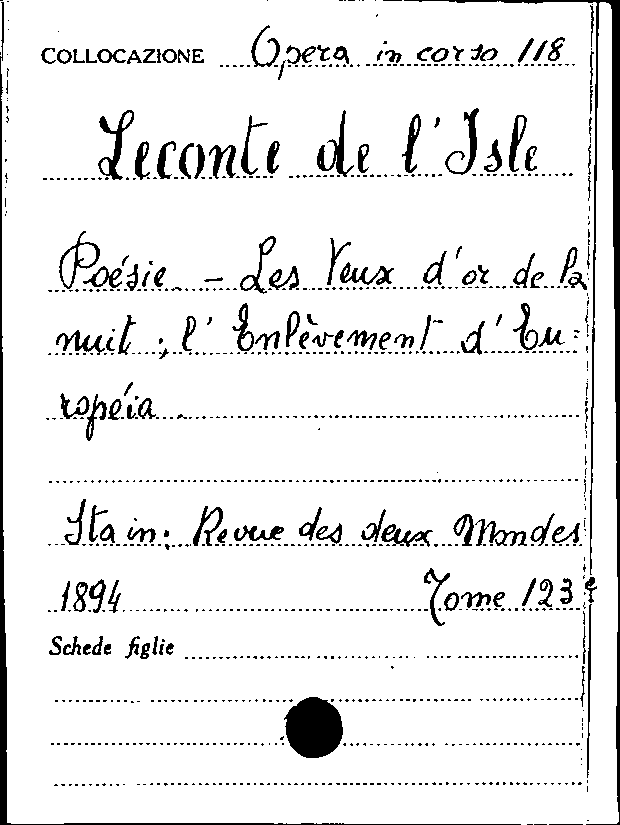 COLLOCAZIONE Opera in corso 118
Leconte de l'Isle
Poésie - Les Yeux d'or de la
nuit; l'Enlèvement d'Eu=
ropéia.
Sta in: Revue des deux Mondes
1894 Tome 123e
Schede figlie